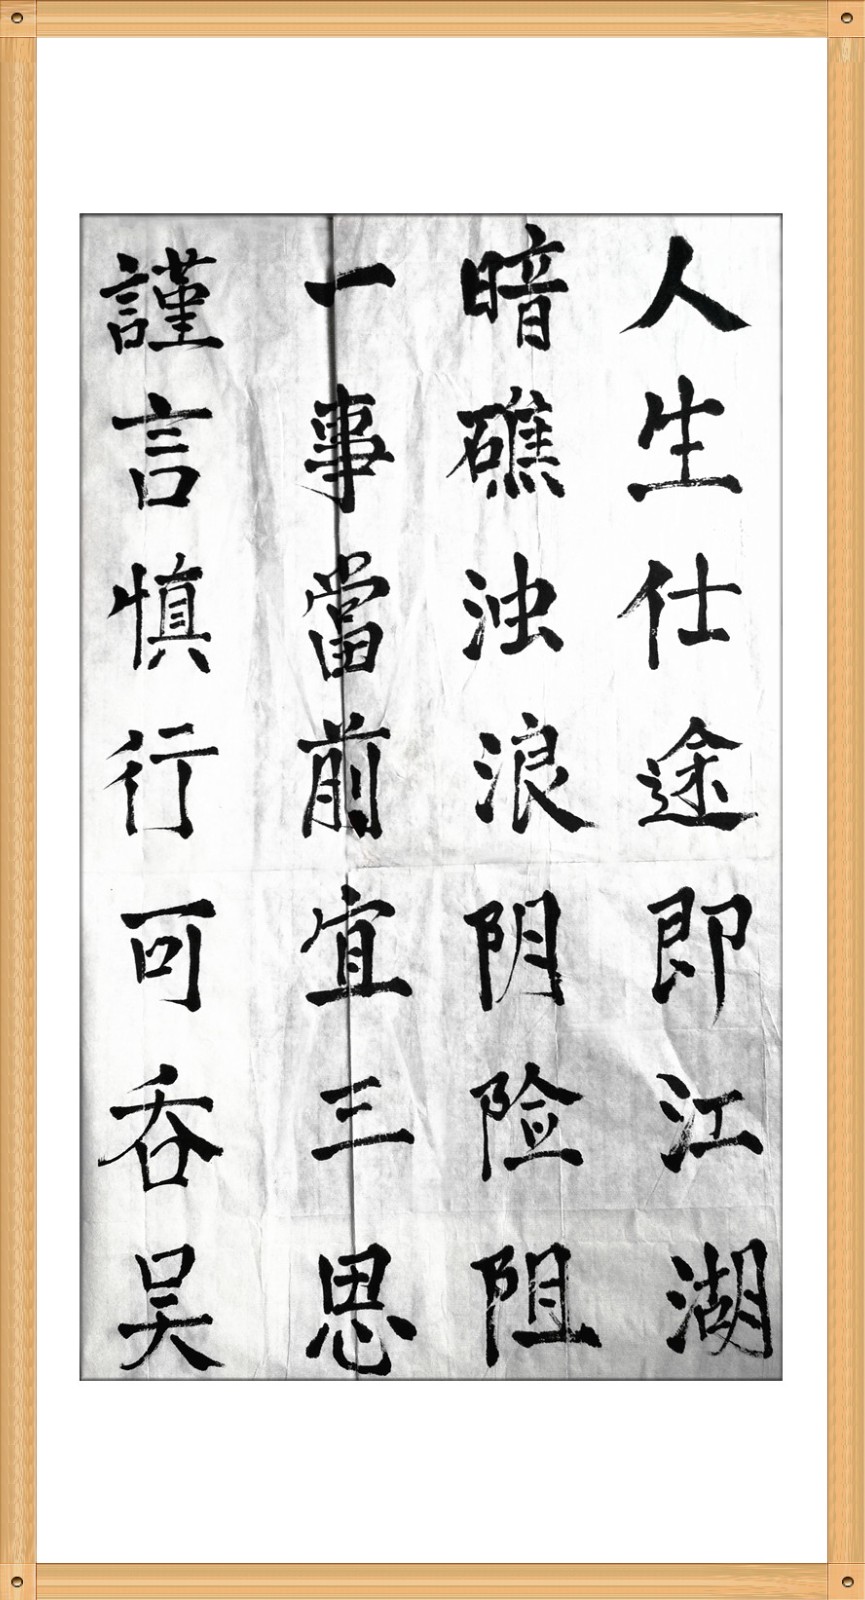 人生仕途即江湖
暗礁浊浪阴险阻
一事當前宜三思
謹言慎行可吞吴